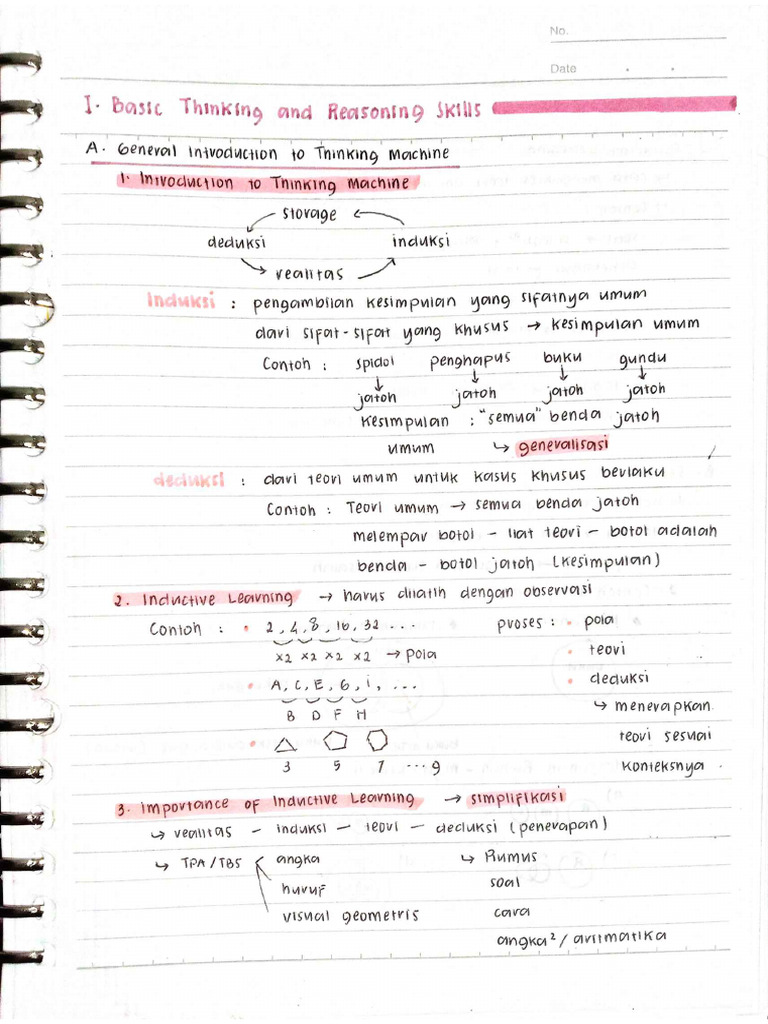 No.
Date
I. Basic Thinking and Reasoning Skills
A. General Introduction to Thinking Machine
1. Introduction to Thinking Machine
storage
deduksi induksi
realitas
Induksi : pengambilan kesimpulan yang sifatnya umum
dari sifat-sifat yang khusus → kesimpulan umum
Contoh : spidol penghapus buku gundu
↓ ↓ ↓ ↓
jatoh jatoh jatoh jatoh
Kesimpulan : "semua" benda jatoh
umum ↳ generalisasi
deduksi : dari teori umum untuk kasus khusus berlaku
Contoh : Teori umum → semua benda jatoh
melempar botol - liat teori - botol adalah
benda - botol jatoh (kesimpulan)
2. Inductive Learning → harus dilatih dengan observasi
Contoh : • 2, 4, 8, 16, 32 ... proses : • pola
x2 x2 x2 x2 → pola • teori
• A, C, E, G, i, ... • deduksi
B D F H ↳ menerapkan
teori sesuai
3 5 7 ... 9 konteksnya
3. Importance of Inductive Learning → simplifikasi
↳ realitas - induksi - teori - deduksi (penerapan)
↳ TPA/TBS < angka ↳ Rumus
huruf soal
visual geometris cara
angka² / aritmatika